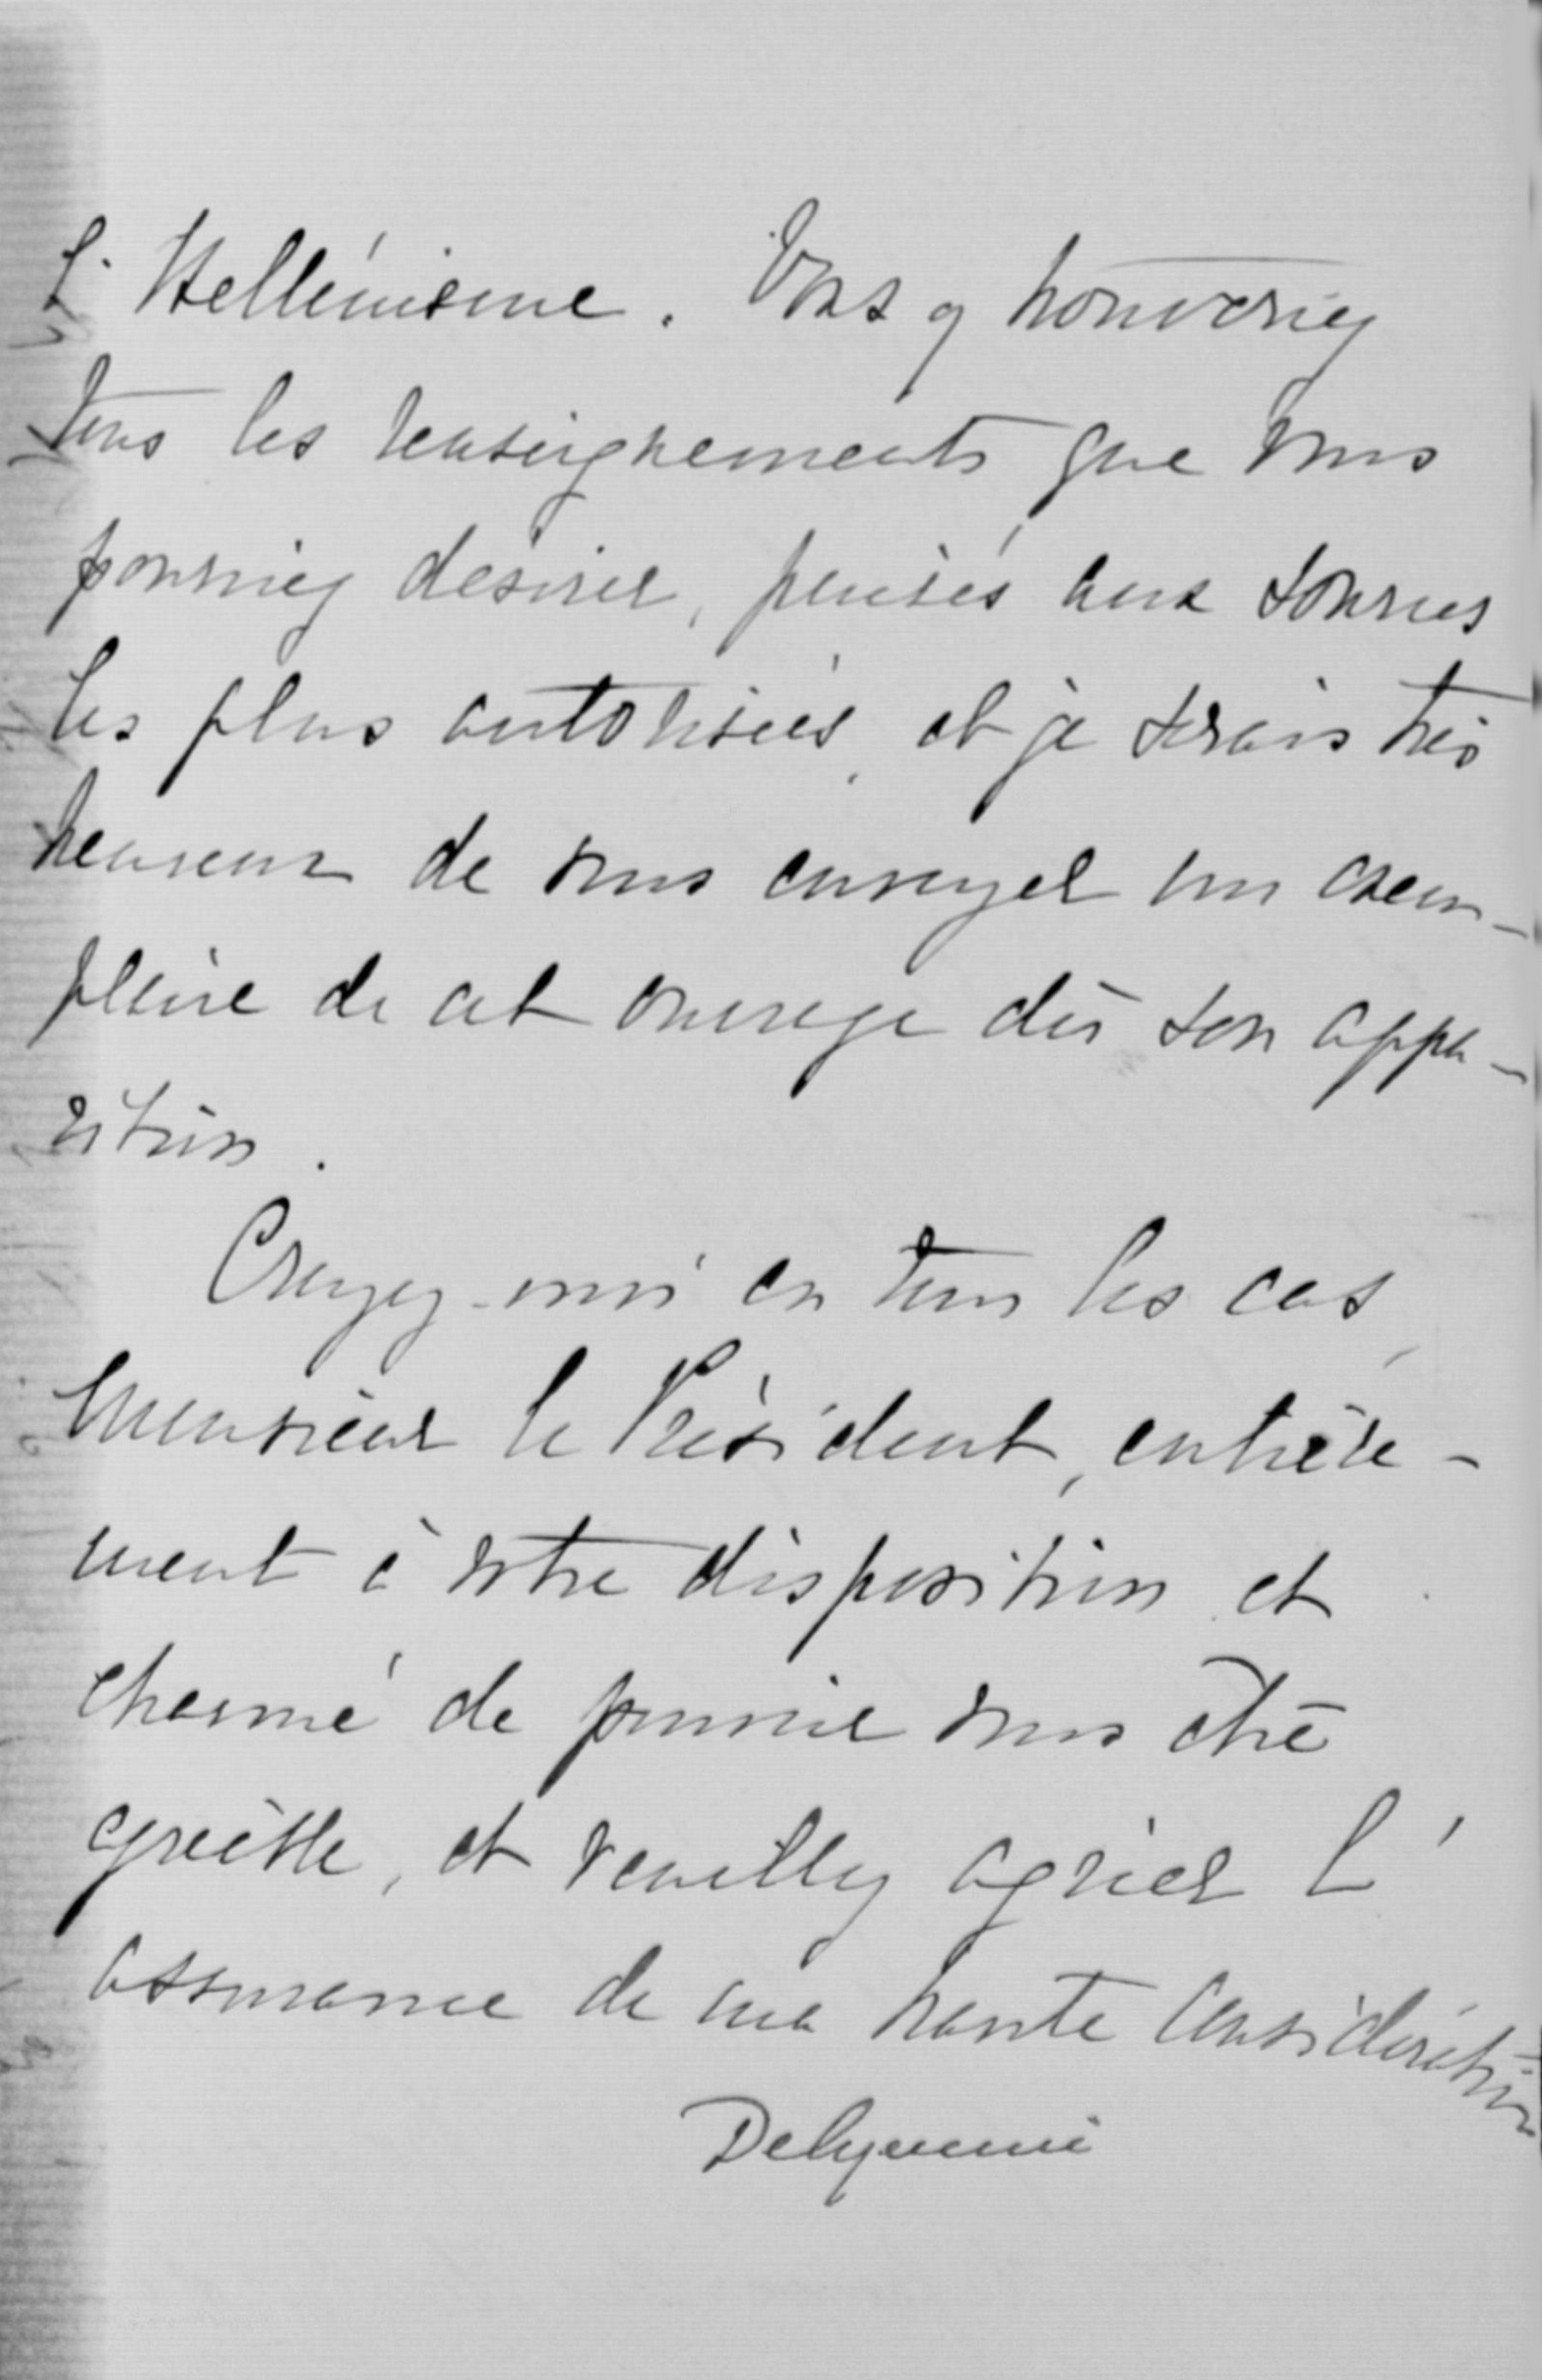 L'Hellénisme. Vous y trouveriez
tous les renseignements que vous
pourriez désirer, puisés aux sources
les plus autorisées, et je serais très
heureux de vous envoyer un exem-
plaire de cet ouvrage dès son appa-
rition.
Croyez-moi en tous les cas,
Monsieur le Président, entière-
ment à votre disposition et
charmé de pouvoir vous être
agréable, et veuillez agréer l'
assurance de ma haute considération
Delyanni